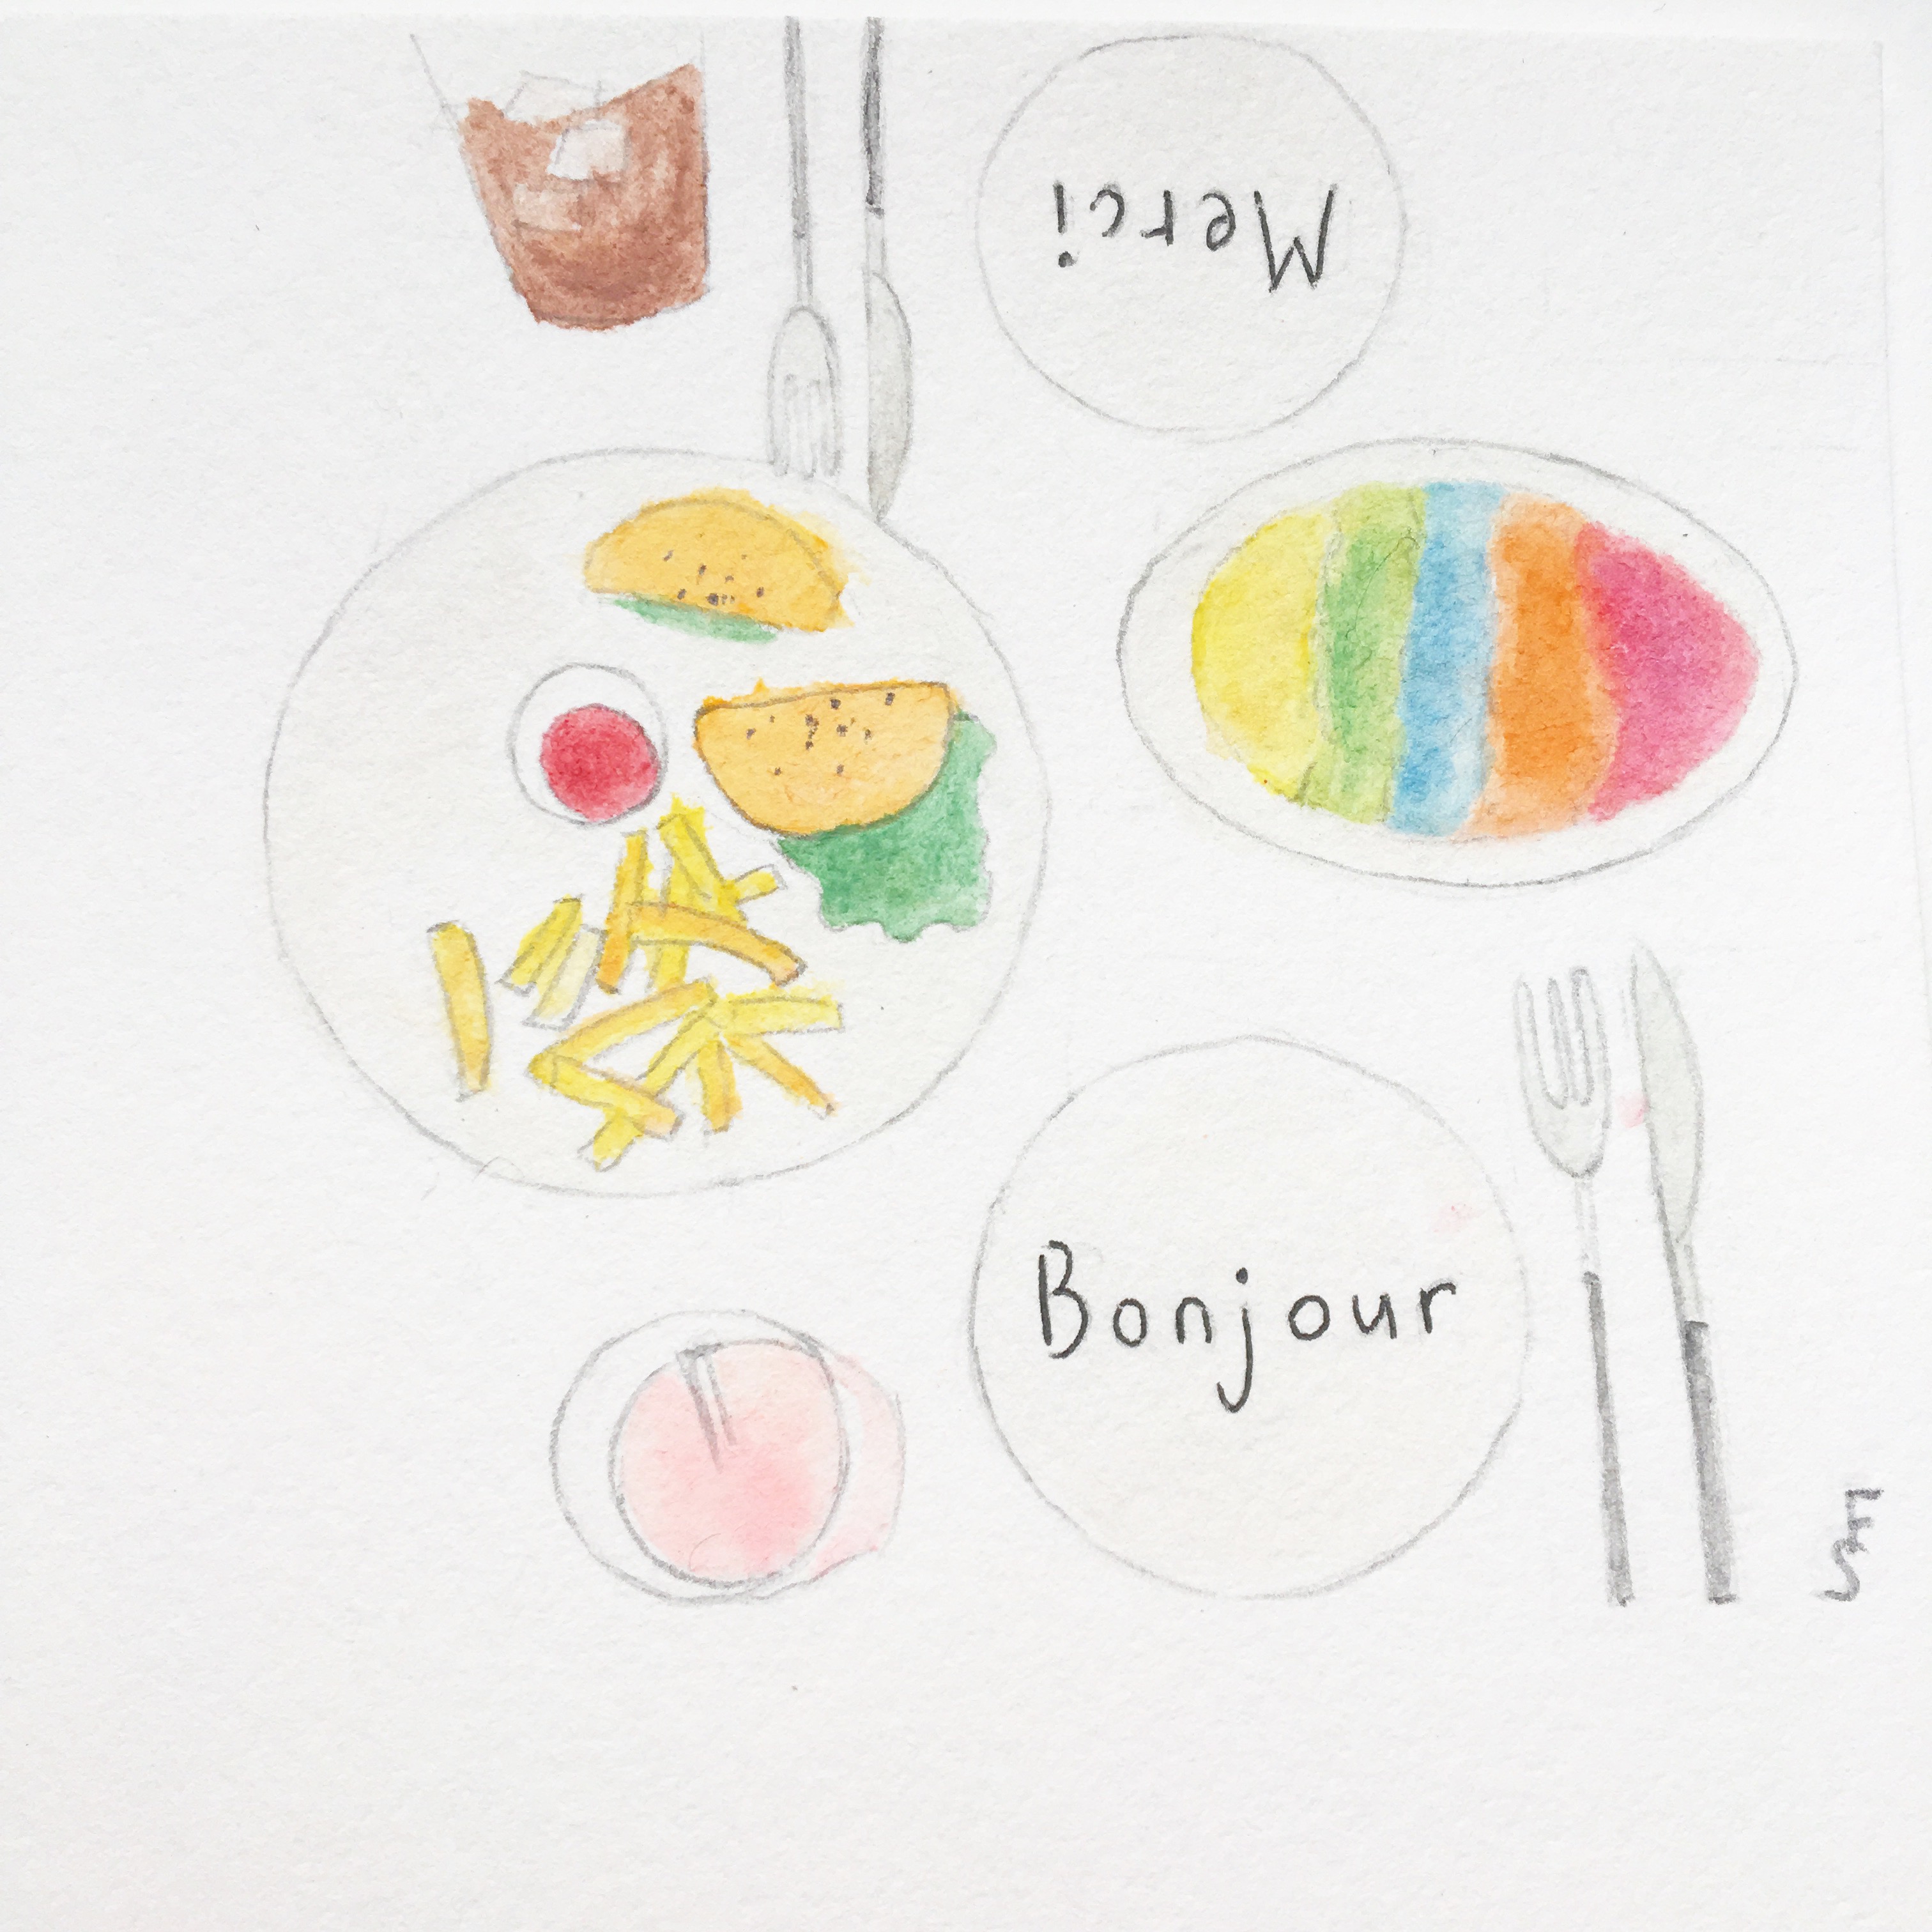 Merci
Bonjour